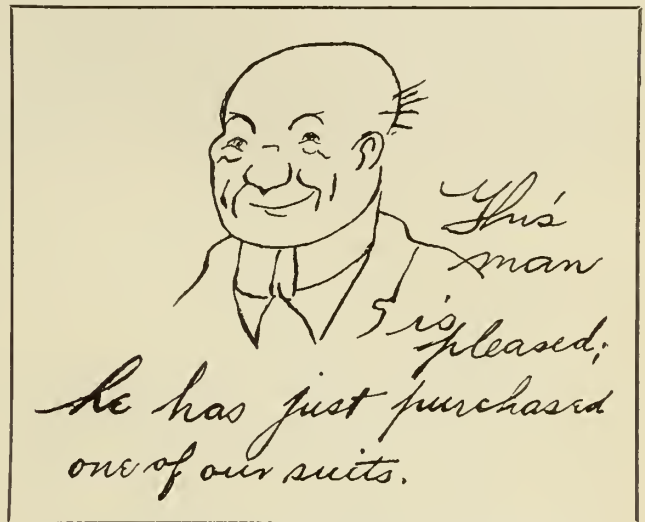 This
man
is
pleased;
he has just purchased
one of our suits.